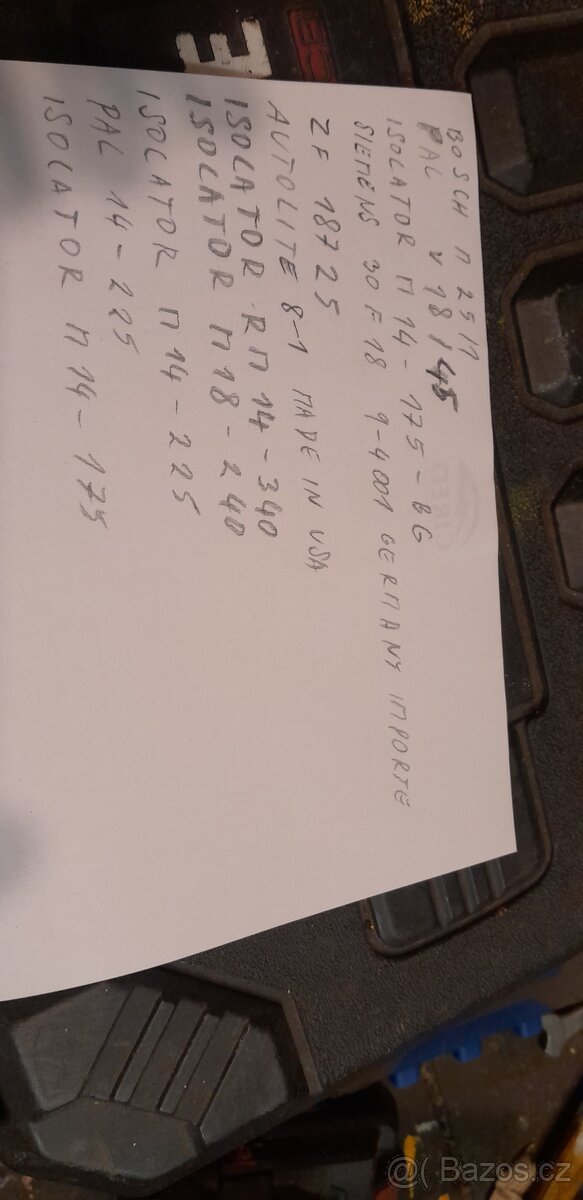 BOSCH M 25/1
PAL V 18/45
ISOLATOR M 14 - 175 - BG
SIEMENS 30 F 18 9-4001 GERMANY IMPORTE
ZF 18725
AUTOLITE 8-1 MADE IN USA
ISOLATOR RM 14 - 340
ISOLATOR M 18 - 240
ISOLATOR M 14 - 225
PAL 14 - 225
ISOLATOR M 14 - 175
@( Bazos.cz